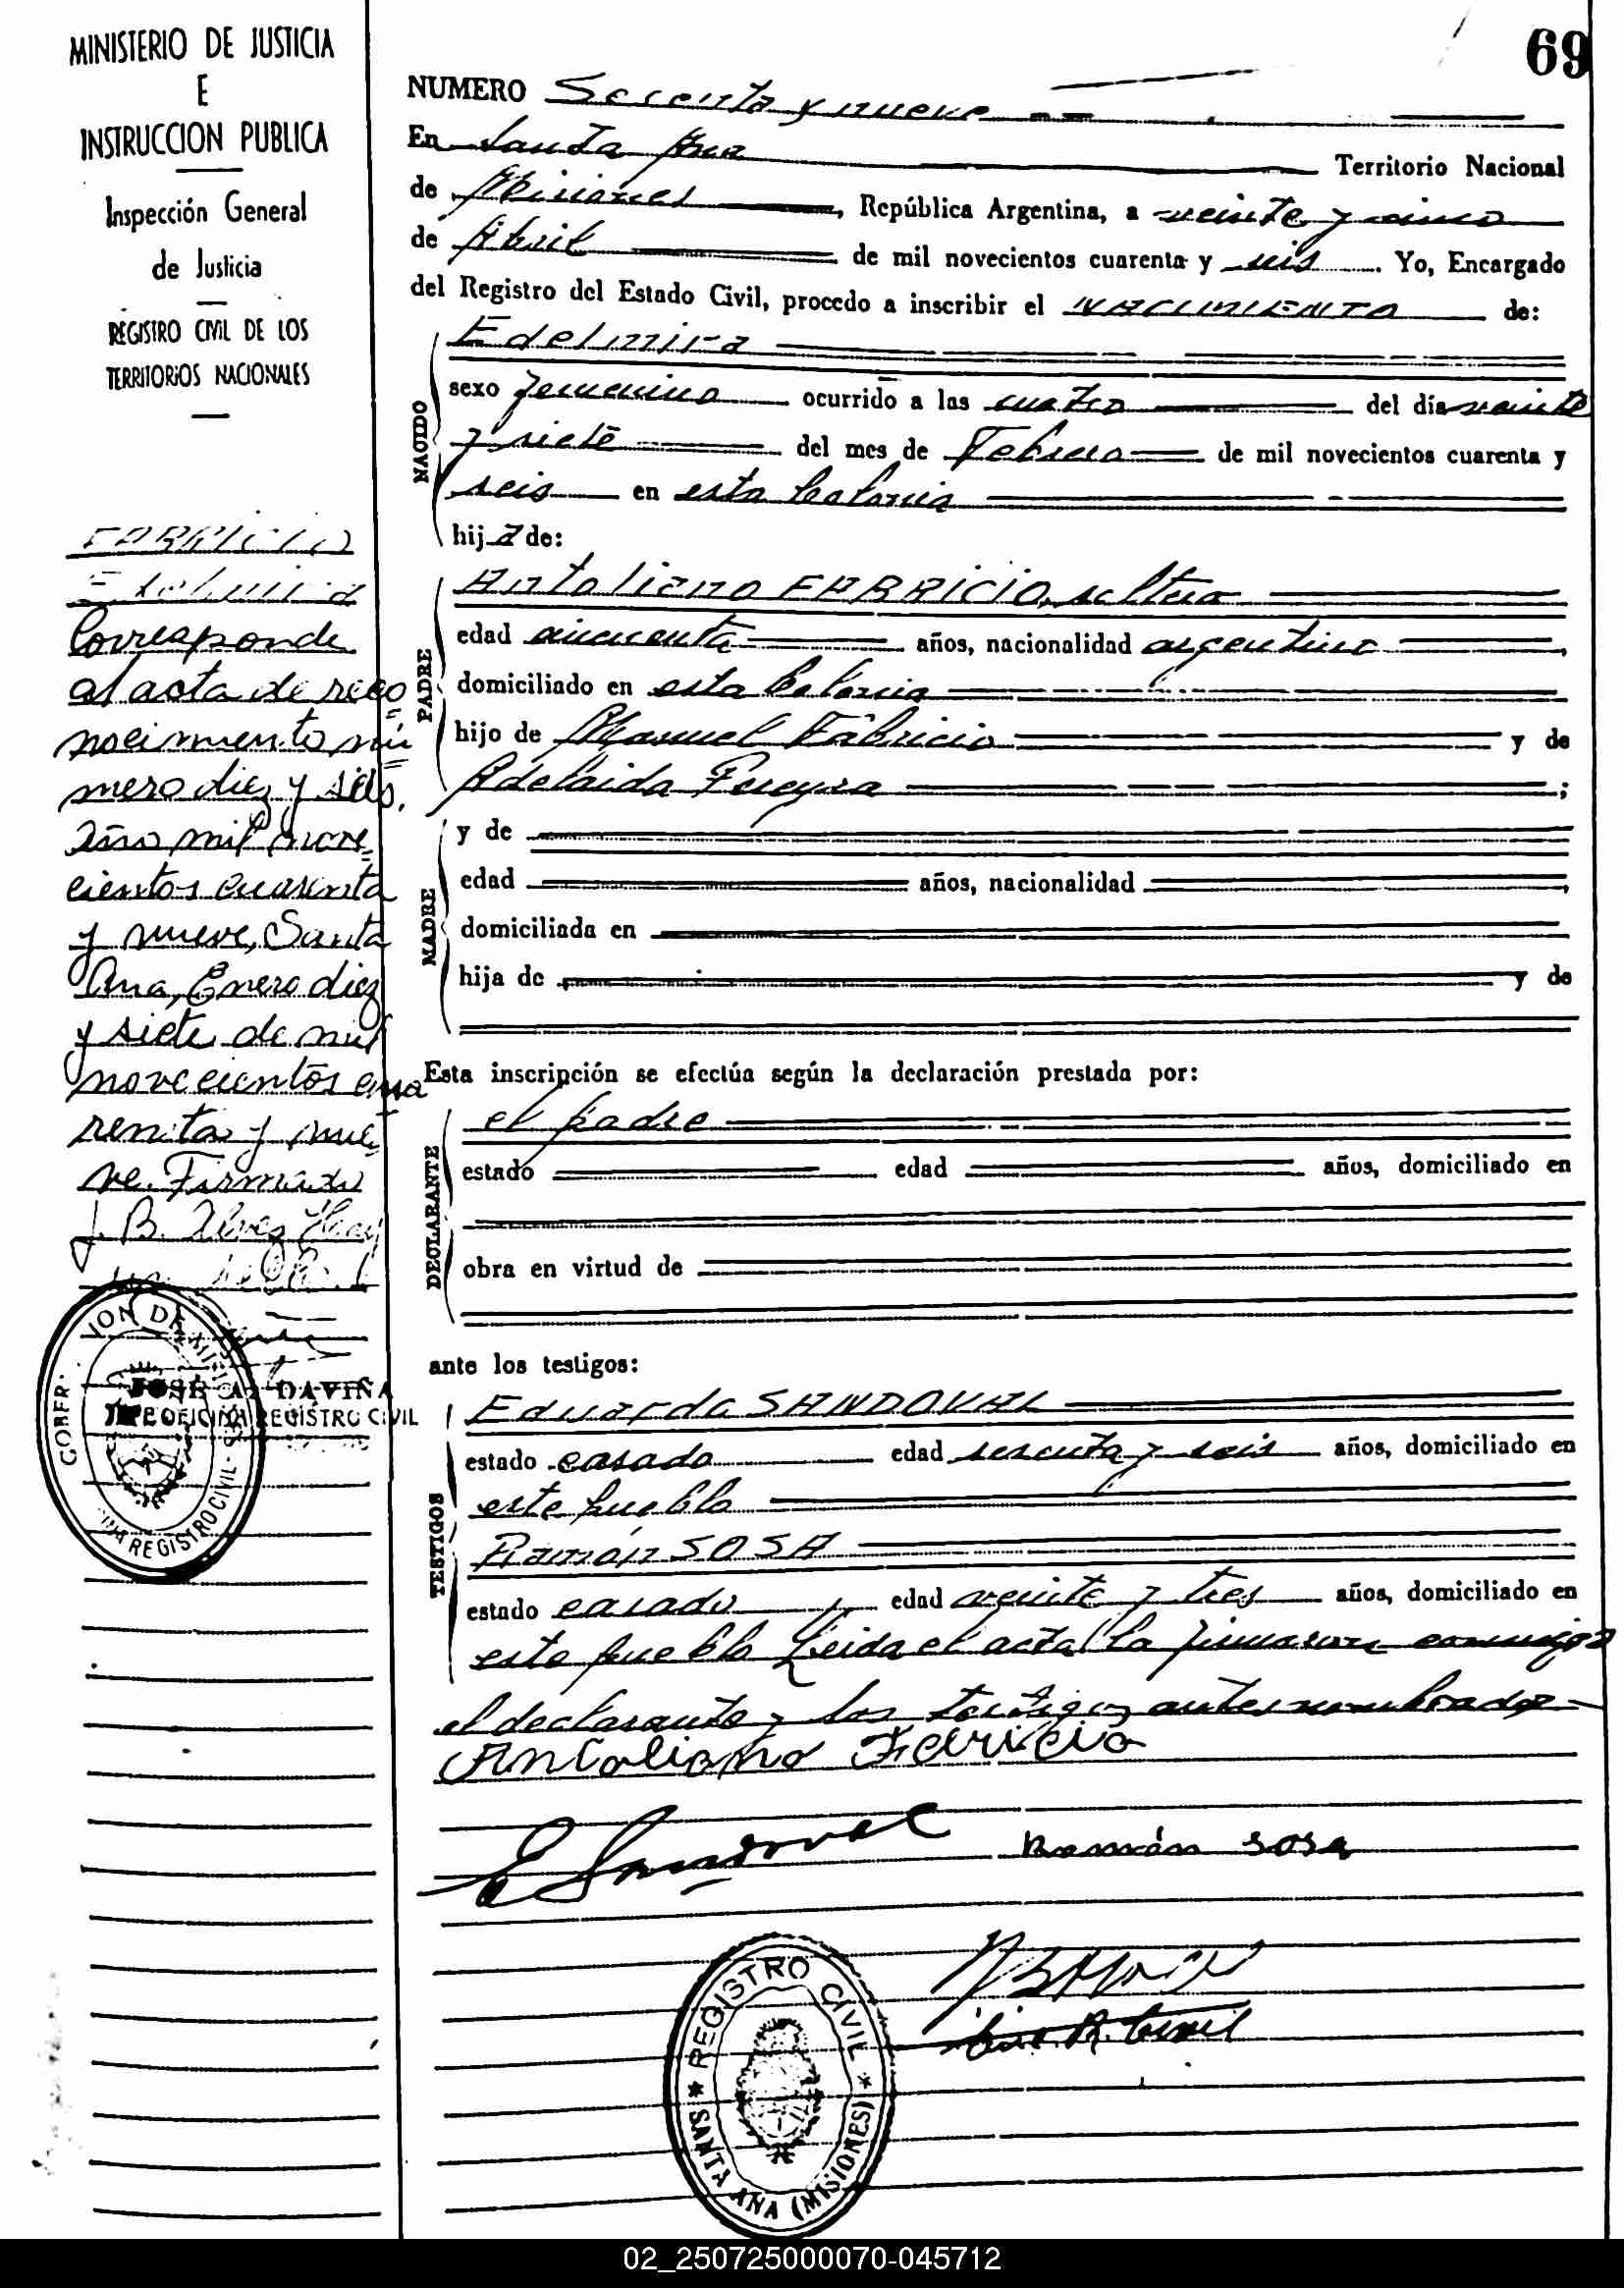 69
MINISTERIO DE JUSTICIA
E
INSTRUCCION PUBLICA
Inspección General
de Justicia
REGISTRO CIVIL DE LOS
TERRITORIOS NACIONALES
FABRICIO
Edelmira
Corresponde
al acta de reco
nocimiento nú
mero diez y seis,
Año mil nove
cientos cuarenta
y nueve, Santa
Ana, Enero diez
y siete de mil
novecientos cua
renta y nue
ve. Firmado
J. B.
JOSE A. DAVIÑA
JEFE OFICINA REGISTRO CIVIL
GOBER. DE MISIONES
REGISTRO CIVIL
NUMERO Sesenta y nueve
En Santa Ana Territorio Nacional
de Misiones, República Argentina, a veinte y cinco
de Abril de mil novecientos cuarenta y seis. Yo, Encargado
del Registro del Estado Civil, procedo a inscribir el NACIMIENTO de:
NACIDO
Edelmira
sexo femenino ocurrido a las cuatro del día veinte
y siete del mes de Febrero de mil novecientos cuarenta y
seis en esta Colonia
hija de:
PADRE
Antoliano FABRICIO, soltero
edad cincuenta años, nacionalidad argentino
domiciliado en esta Colonia
hijo de Manuel Fabricio y de
Adelaida Pereyra ;
MADRE
y de
edad años, nacionalidad
domiciliada en
hija de y de
Esta inscripción se efectúa según la declaración prestada por:
DECLARANTE
el padre
estado edad años, domiciliado en
obra en virtud de
ante los testigos:
TESTIGOS
Eduardo SANDOVAL
estado casado edad sesenta y seis años, domiciliado en
este pueblo
Ramón SOSA
estado casado edad veinte y tres años, domiciliado en
este pueblo Leida el acta la firmaron conmigo
el declarante y los testigos antes nombrados
Antoliano Fabricio
E Sandoval Ramón Sosa
REGISTRO CIVIL
SANTA ANA (MISIONES)
02_250725000070-045712